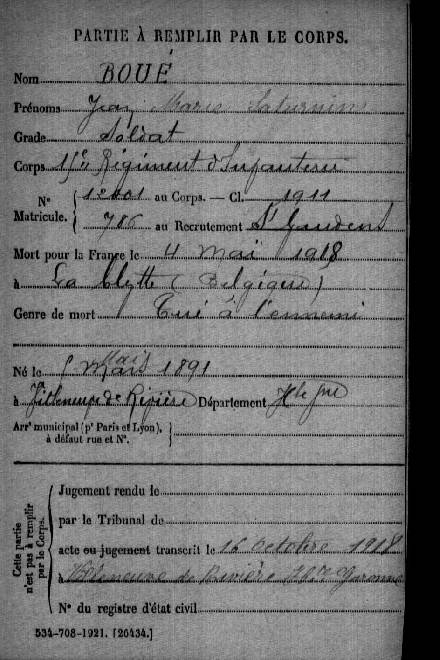 PARTIE À REMPLIR PAR LE CORPS.
Nom BOUÉ
Prénoms Jean Marie Saturnin
Grade Soldat
Corps Régiment d'Infanterie
N° Matricule. { 12001 au Corps. — Cl. 1911
786 au Recrutement St Gaudens
Mort pour la France le 4 mai 1918
à La Clytte (Belgique)
Genre de mort Tué à l'ennemi
Né le Mars 1891
à Villeneuve de Rivière Département Hte Gne
Arrt municipal (pr Paris et Lyon), à défaut rue et N°.
Cette partie n'est pas à remplir par le Corps.
Jugement rendu le
par le Tribunal de
acte ou jugement transcrit le 16 octobre 1918
à Villeneuve de Rivière Hte Garonne
N° du registre d'état civil
534-708-1921. [26434.]